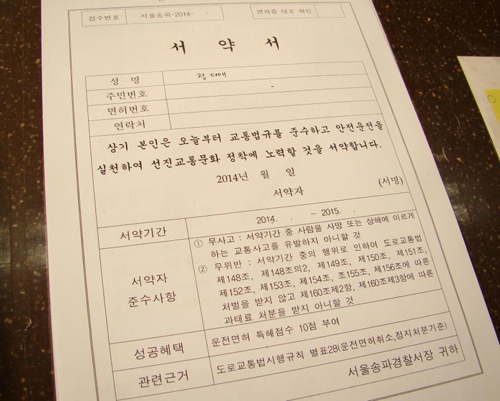 접수번호 서울송파-2014- 면허증 대조 확인
서 약 서
성 명
주민번호 -
면허번호
연락처
상기 본인은 오늘부터 교통법규를 준수하고 안전운전을
실천하여 선진교통문화 정착에 노력할 것을 서약합니다.
2014년 월 일
서약자 (서명)
서약기간 2014. . ~ 2015. .
서약자
준수사항
① 무사고 : 서약기간 중 사람을 사망 또는 상해에 이르게
하는 교통사고를 유발하지 아니할 것
② 무위반 : 서약기간 중의 행위로 인하여 도로교통법
제148조, 제148조의2, 제149조, 제150조, 제151조,
제152조, 제153조, 제154조, 조155조, 제156조에 따른
처벌을 받지 않고 제160조제2항, 제160조제3항에 따른
과태료 처분을 받지 아니할 것
성공혜택 운전면허 특혜점수 10점 부여
관련근거 도로교통법시행규칙 별표28(운전면허취소,정지처분기준)
서울송파경찰서장 귀하